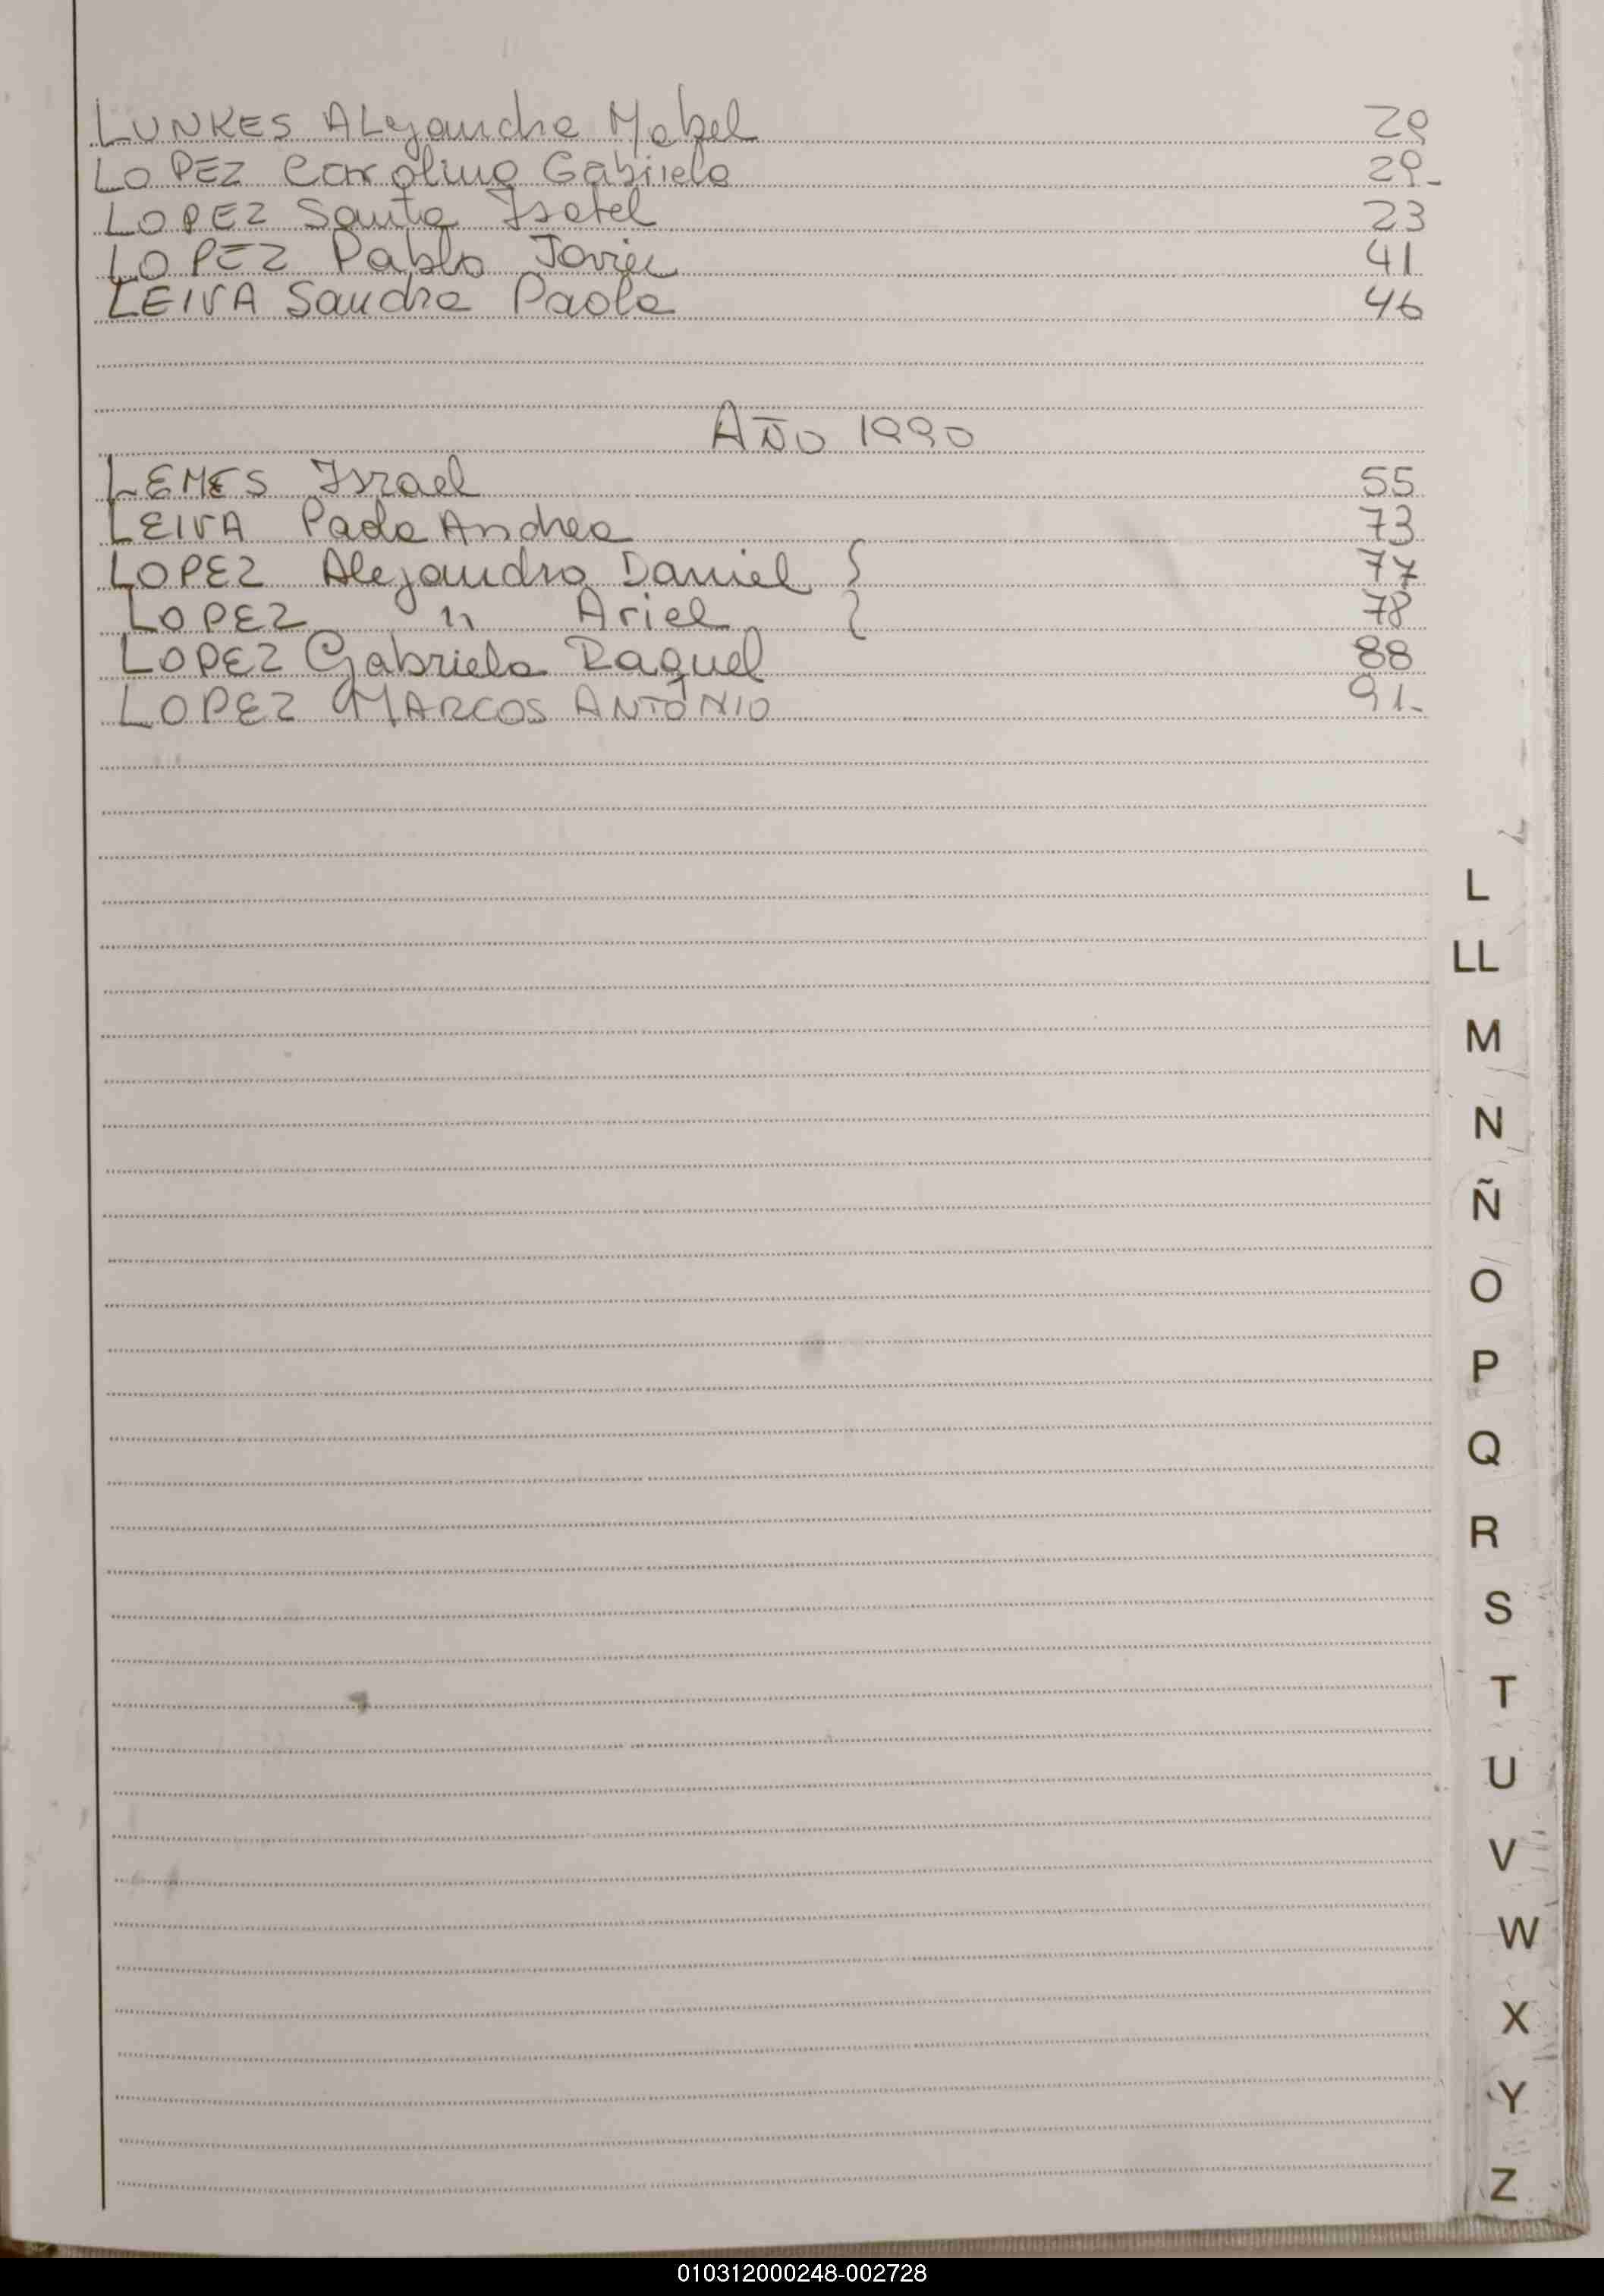 LUNKES Alejandra Mabel 29
LOPEZ Carolina Gabriela 29-
LOPEZ Santa Isabel 23
LOPEZ Pablo Javier 41
LEIVA Sandra Paola 46
AÑO 1990
LEMES Israel 55
LEIVA Paola Andrea 73
LOPEZ Alejandro Daniel } 77
LOPEZ " Ariel } 78
LOPEZ Gabriela Raquel 88
LOPEZ MARCOS ANTONIO 91-
L
LL
M
N
Ñ
O
P
Q
R
S
T
U
V
W
X
Y
Z
010312000248-002728